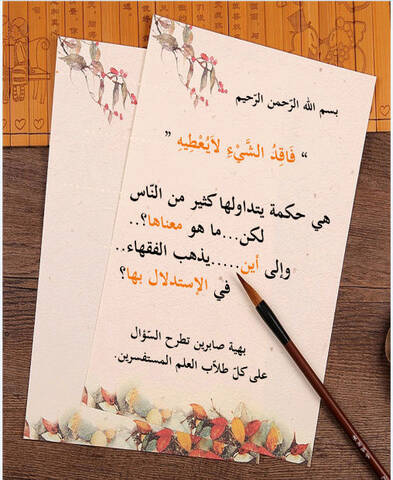 بسم الله الرّحمن الرّحيم
“ فَاقِدُ الشَّيْءِ لاَيُعْطِيهِ ”
هي حكمة يتداولها كثير من النّاس
لكن...ما هو معناها؟..
وإلى أين.....يذهب الفقهاء..
في الإستدلال بها؟
بهية صابرين تطرح السّؤال
على كلّ طلاّب العلم المستفسرين.